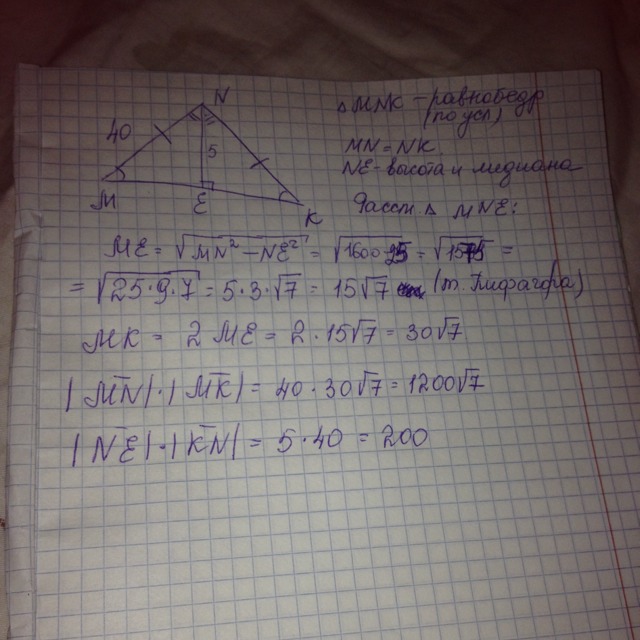 N
40
5
M
E
K
△ MNK - равнобедр
(по усл)
MN = NK
NE - высота и медиана
Рассм. △ MNE:
ME = √MN² - NE² = √1600 - 25 = √1575 =
= √25·9·7 = 5·3·√7 = 15√7 (т. Пифагора)
MK = 2 ME = 2·15√7 = 30√7
|MN|·|MK| = 40·30√7 = 1200√7
|NE|·|KN| = 5·40 = 200